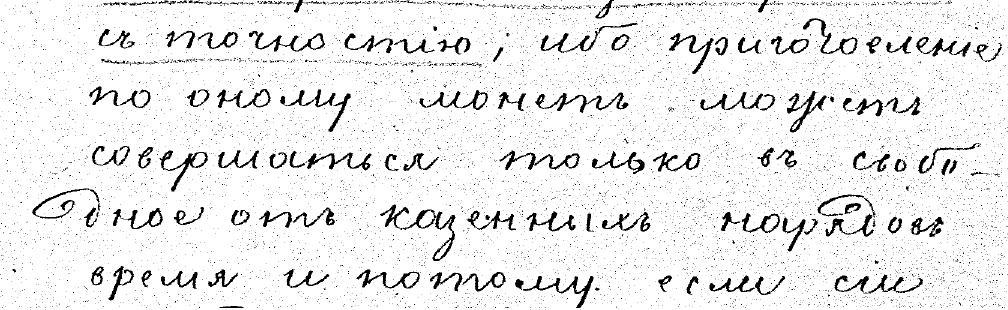 съ точностію; ибо приготовленіе
по оному монетъ можетъ
совершаться только въ свобо-
дное отъ казенныхъ нарядовъ
время и потому если сіи